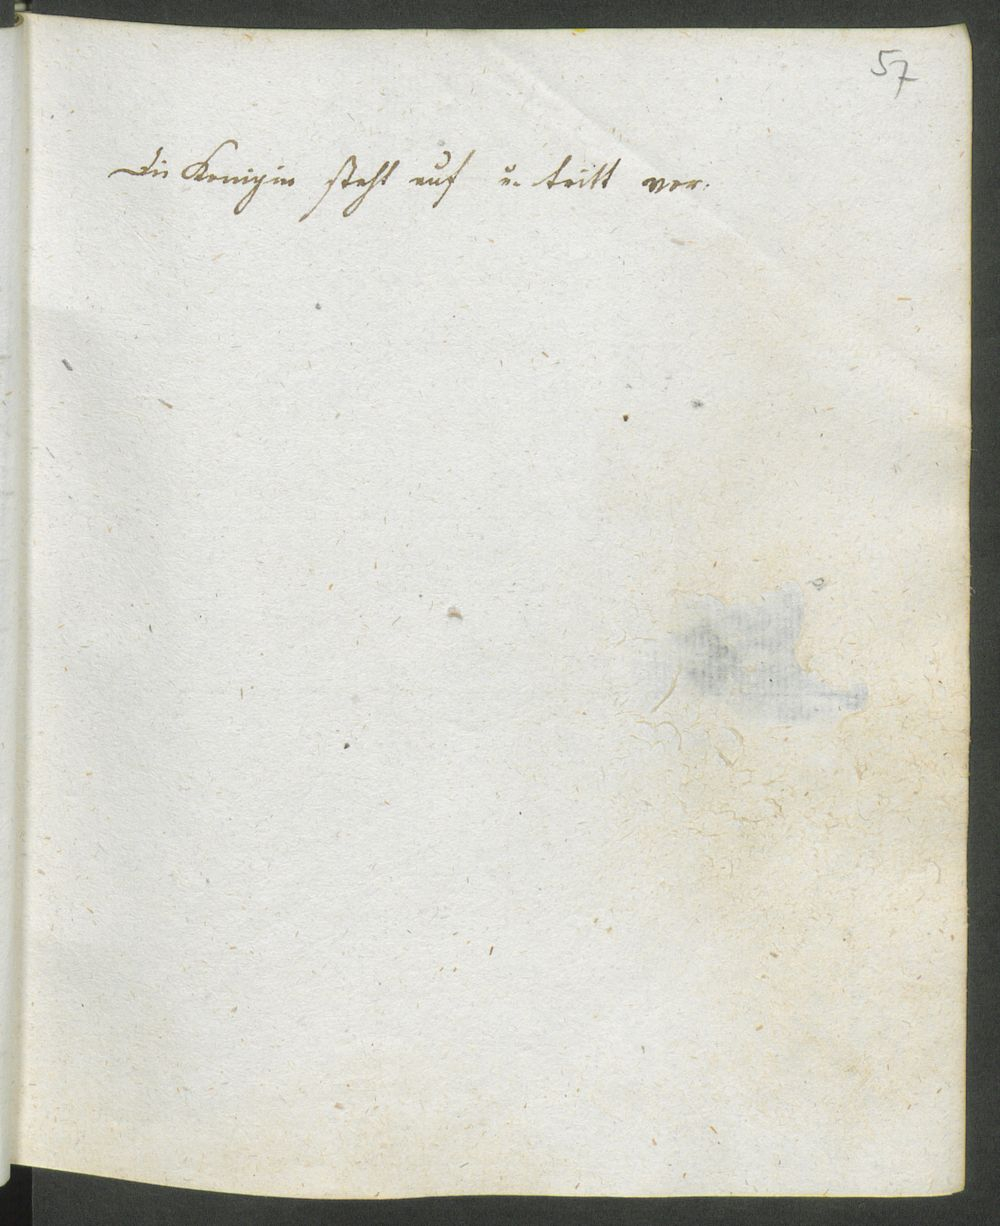 57
Die Konigin steht auf u. tritt vor.